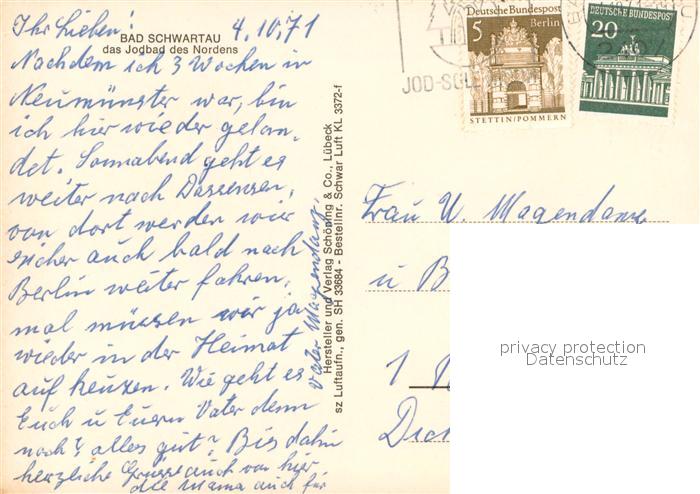 Ihr Lieben! 4.10.71
BAD SCHWARTAU
das Jodbad des Nordens
Nachdem ich 3 Wochen in
Neumünster war, bin
ich hier wieder gelan-
det. Sonnabend geht es
weiter nach Dassensen,
von dort werden wir
sicher auch bald nach
Berlin weiter fahren,
mal müssen wir ja
wieder in der Heimat
auf keuzen. Wie geht es
Euch u Euern Vater denn
noch? alles gut? Bis dahin
herzliche Grüsse auch von hier
die Mama auch für
Vater Magendanz.
Hersteller und Verlag Schöning & Co., Lübeck
sz Luftaufn., gen. SH 33684 - Bestellnr. Schwar Luft KL 3372-f
JOD-SOLE
5 Deutsche Bundespost
Berlin
STETTIN/POMMERN
DEUTSCHE BUNDESPOST
20
Frau U. Magendanz
u B
1
privacy protection
Datenschutz